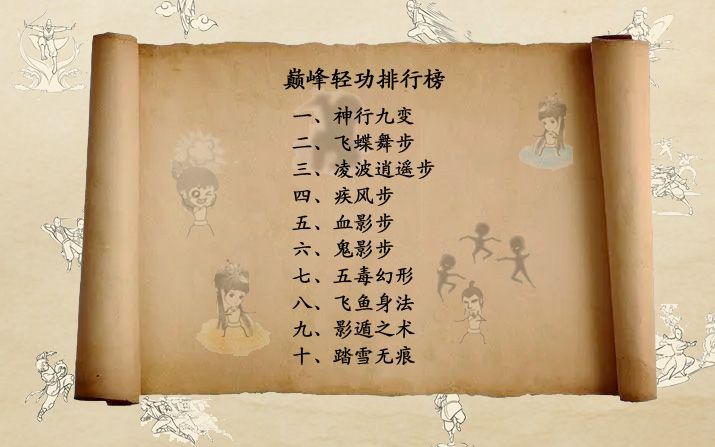 巅峰轻功排行榜
一、神行九变
二、飞蝶舞步
三、凌波逍遥步
四、疾风步
五、血影步
六、鬼影步
七、五毒幻形
八、飞鱼身法
九、影遁之术
十、踏雪无痕